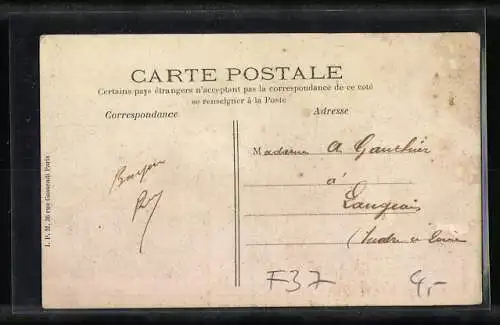 CARTE POSTALE
Certains pays étrangers n'acceptant pas la correspondance de ce côté
se renseigner à la Poste
Correspondance
Adresse
Bonjour
Madame A. Gauthier
à
Langeais
(Indre et Loire
I. P. M, 36 rue Gassendi Paris
F37
4,-